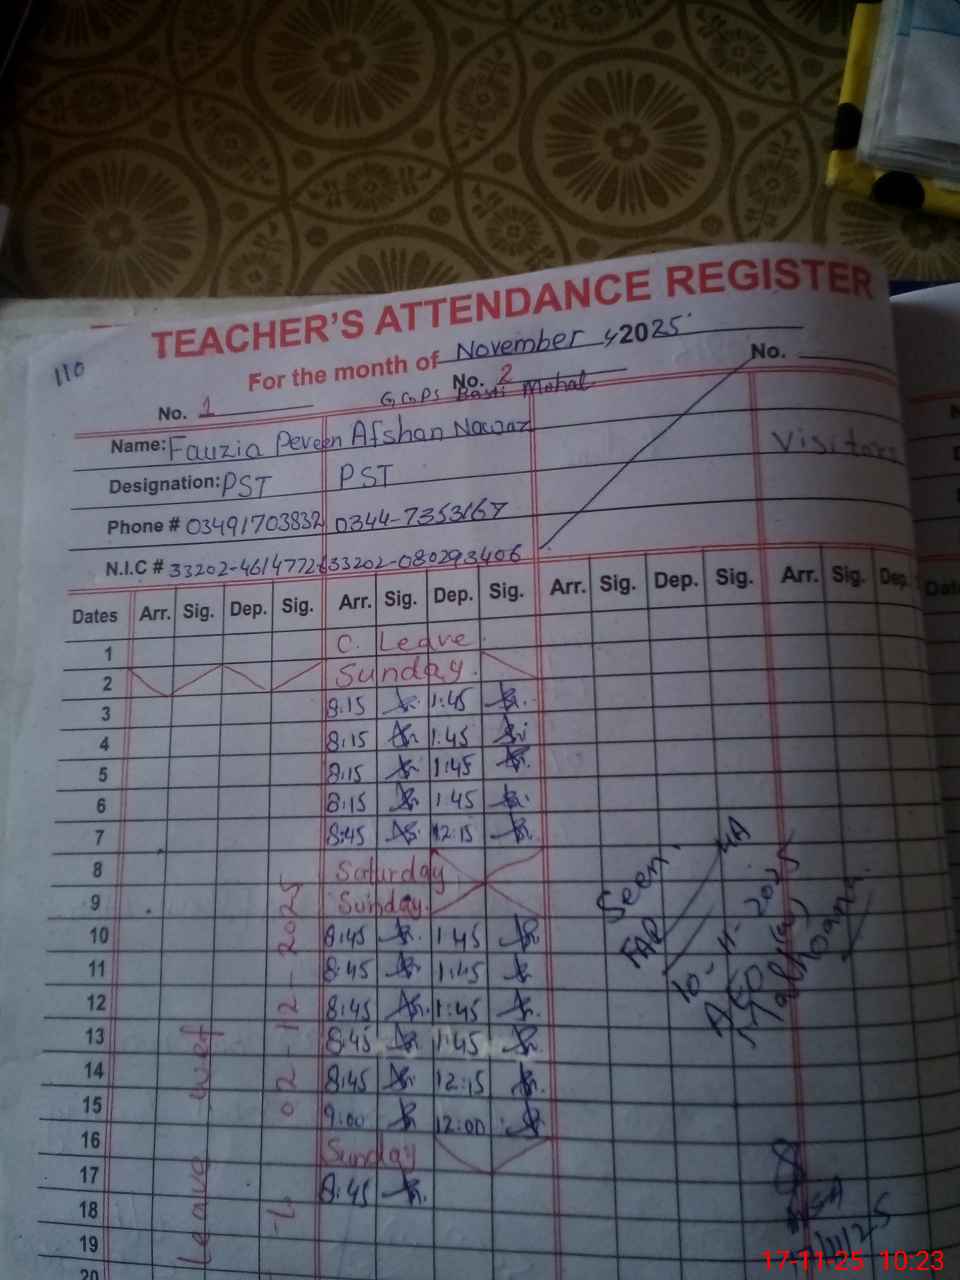 TEACHER'S ATTENDANCE REGISTER
110
For the month of November 2025
No. 1 No. 2 No.
G.G.P.S Basti Mohal
Name: Fauzia Peveen Afshan Nawaz Visitors
Designation: PST PST
Phone # 03491703832 0344-7353167
N.I.C # 33202-4614772 33202-080293406
Dates Arr. Sig. Dep. Sig. Arr. Sig. Dep. Sig. Arr. Sig. Dep. Sig. Arr. Sig. Dep.
1 C. Leave
2 Sunday
3 8:15 1:45
4 8:15 1:45
5 8:15 1:45
6 8:15 1:45
7 8:45 12:15
8 Saturday
9 Sunday
10 8:45 1:45
11 8:45 1:45
12 8:45 1:45
13 8:45 1:45
14 8:45 12:15
15 9:00 12:00
16 Sunday
17 8:45
18
19
20
Leave wef
02-12-2025
Seen
10-11-2025
17-11-25 10:23